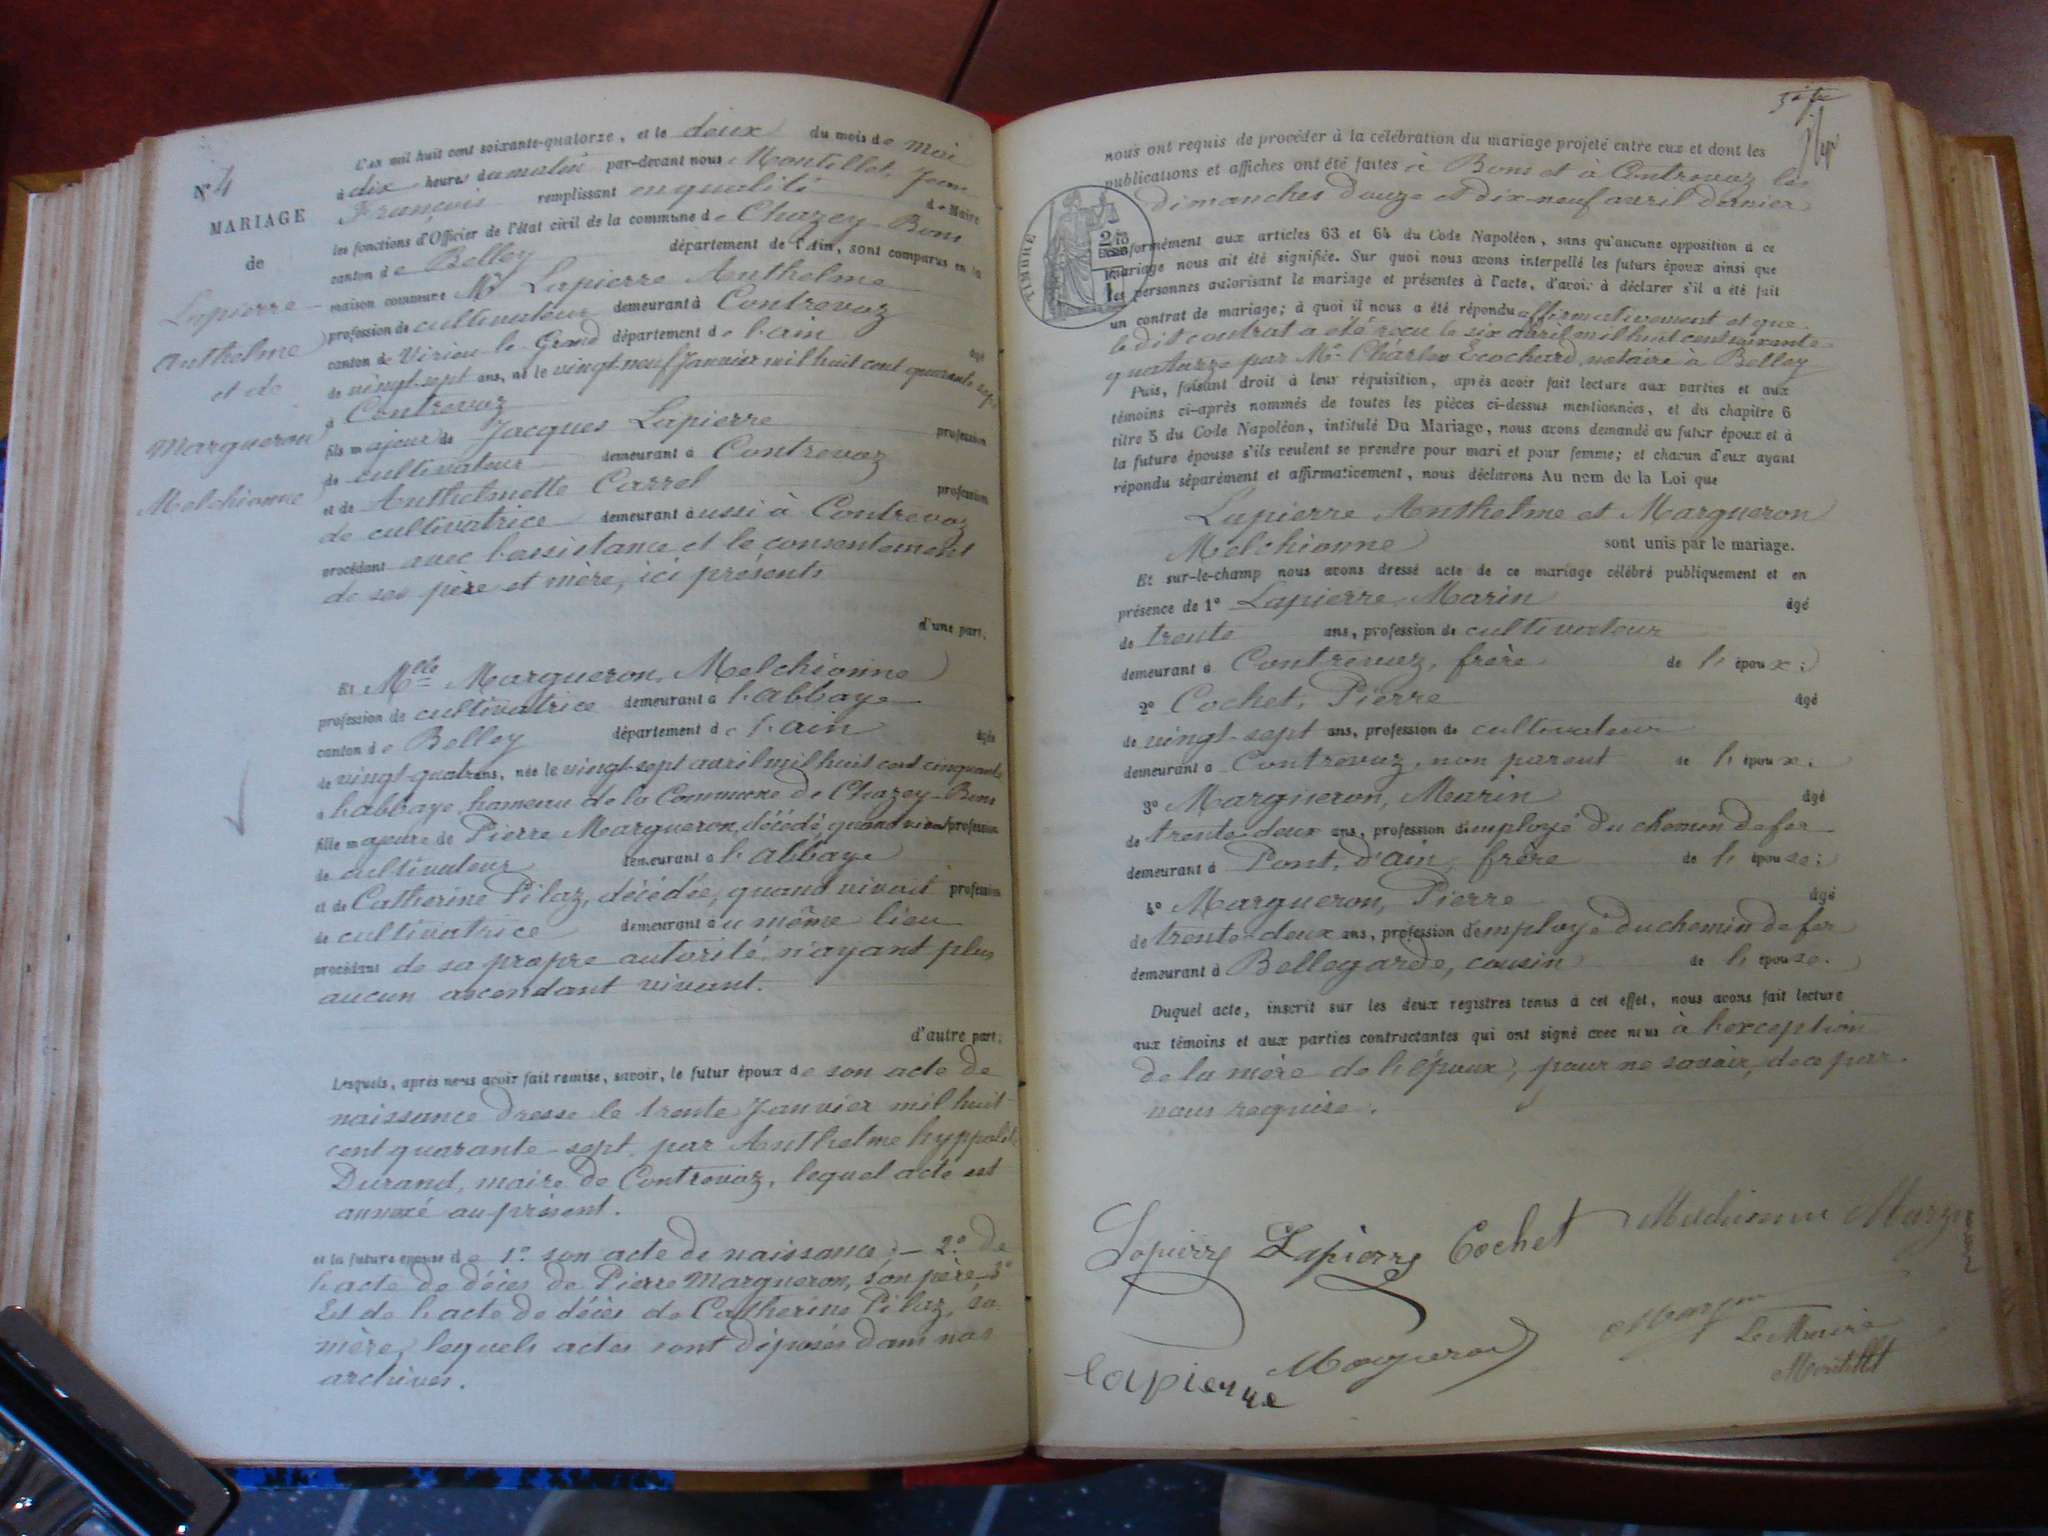 N° 4
MARIAGE
de
Lapierre
Anthelme
et de
Margueron
Melchionne
L'an mil huit cent soixante-quatorze, et le deux du mois de mai
à dix heures du matin par-devant nous Montillet, Jean
François remplissant en qualité de Maire
les fonctions d'Officier de l'état civil de la commune de Chazey-Bons
canton de Belley département de l'Ain, sont comparus en la
maison commune Mr Lapierre Anthelme
profession de cultivateur demeurant à Contrevoz
canton de Virieu-le-Grand département de l'ain âgé
de vingt-sept ans, né le vingt-neuf Janvier mil huit cent quarante sept
à Contrevoz
fils majeur de Jacques Lapierre profession
de cultivateur demeurant à Contrevoz
et de Anthelmette Carrel profession
de cultivatrice demeurant aussi à Contrevoz
procédant avec l'assistance et le consentement
de ses père et mère, ici présents
d'une part;
Et Melle Margueron, Melchionne
profession de cultivatrice demeurant à l'abbaye
canton de Belley département de l'ain âgée
de vingt-quatre ans, née le vingt-sept avril mil huit cent cinquante
à l'abbaye hameau de la Commune de Chazey-Bons
fille majeure de Pierre Margueron, décédé quand vivait profession
de cultivateur demeurant à l'abbaye
et de Catherine Pilaz, décédée, quand vivait profession
de cultivatrice demeurant au même lieu
procédant de sa propre autorité, n'ayant plus
aucun ascendant vivant.
d'autre part;
Lesquels, après nous avoir fait remise, savoir, le futur époux de son acte de
naissance dressé le trente Janvier mil huit
cent quarante-sept, par Anthelme hyppolite
Durand, maire de Contrevoz, lequel acte est
annexé au présent.
et la future épouse de 1° son acte de naissance; - 2° de
l'acte de décès de Pierre Margueron, son père, 3°
Et de l'acte de décès de Catherine Pilaz, sa
mère, lequels actes sont déposés dans nos
archives.
nous ont requis de procéder à la célébration du mariage projeté entre eux et dont les
publications et affiches ont été faites à Bons et à Contrevoz les
dimanches douze et dix-neuf avril dernier
TIMBRE
conformément aux articles 63 et 64 du Code Napoléon, sans qu'aucune opposition à ce
mariage nous ait été signifiée. Sur quoi nous avons interpellé les futurs époux ainsi que
les personnes autorisant le mariage et présentes à l'acte, d'avoir à déclarer s'il a été fait
un contrat de mariage; à quoi il nous a été répondu affirmativement et que
le dit contrat a été reçu le six avril mil huit cent soixante
quatorze par Me Charles Ecochard notaire à Belley
Puis, faisant droit à leur réquisition, après avoir fait lecture aux parties et aux
témoins ci-après nommés de toutes les pièces ci-dessus mentionnées, et du chapitre 6
titre 5 du Code Napoléon, intitulé Du Mariage, nous avons demandé au futur époux et à
la future épouse s'ils veulent se prendre pour mari et pour femme; et chacun d'eux ayant
répondu séparément et affirmativement, nous déclarons Au nom de la Loi que
Lapierre Anthelme et Margueron
Melchionne sont unis par le mariage.
Et sur-le-champ nous avons dressé acte de ce mariage célébré publiquement et en
présence de 1° Lapierre, Marin âgé
de trente ans, profession de cultivateur
demeurant à Contrevoz, frère de l'époux;
2° Cochet, Pierre âgé
de vingt-sept ans, profession de cultivateur
demeurant à Contrevoz, non parent de l'époux;
3° Margueron, Marin âgé
de trente-deux ans, profession d'employé du chemin de fer
demeurant à Pont, d'ain, frère de l'épouse;
4° Margueron, Pierre âgé
de trente-deux ans, profession d'employé du chemin de fer
demeurant à Bellegarde, cousin de l'épouse.
Duquel acte, inscrit sur les deux registres tenus à cet effet, nous avons fait lecture
aux témoins et aux parties contractantes qui ont signé avec nous à l'exception
de la mère de l'époux, pour ne savoir, de ce par
nous requise.
Lapierre Lapierre Cochet Melchionne Margueron
Lapierre Margueron
Le Maire
Montillet